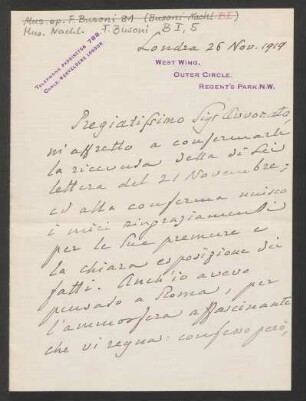 Mus.ep. F. Busoni 81 (Busoni-Nachl. B I)
Mus. Nachl. F. Busoni B I, 5
Londra 26 Nov. 1919
TELEPHONE PADDINGTON 788.
LONDON.
WEST WING,
OUTER CIRCLE,
REGENT'S PARK.N.W.
Pregiatissimo Sigr Avvocato,
m'affretto a confermarle
la ricevuta della di Lei
lettera del 21 Novembre;
ed alla conferma unisco
i miei ringraziamenti
per le Sue premure e
la chiara esposizione dei
fatti. Anch'io avevo
pensato a Roma, per
l'ammosfera affascinante
che vi regna: confesso però,